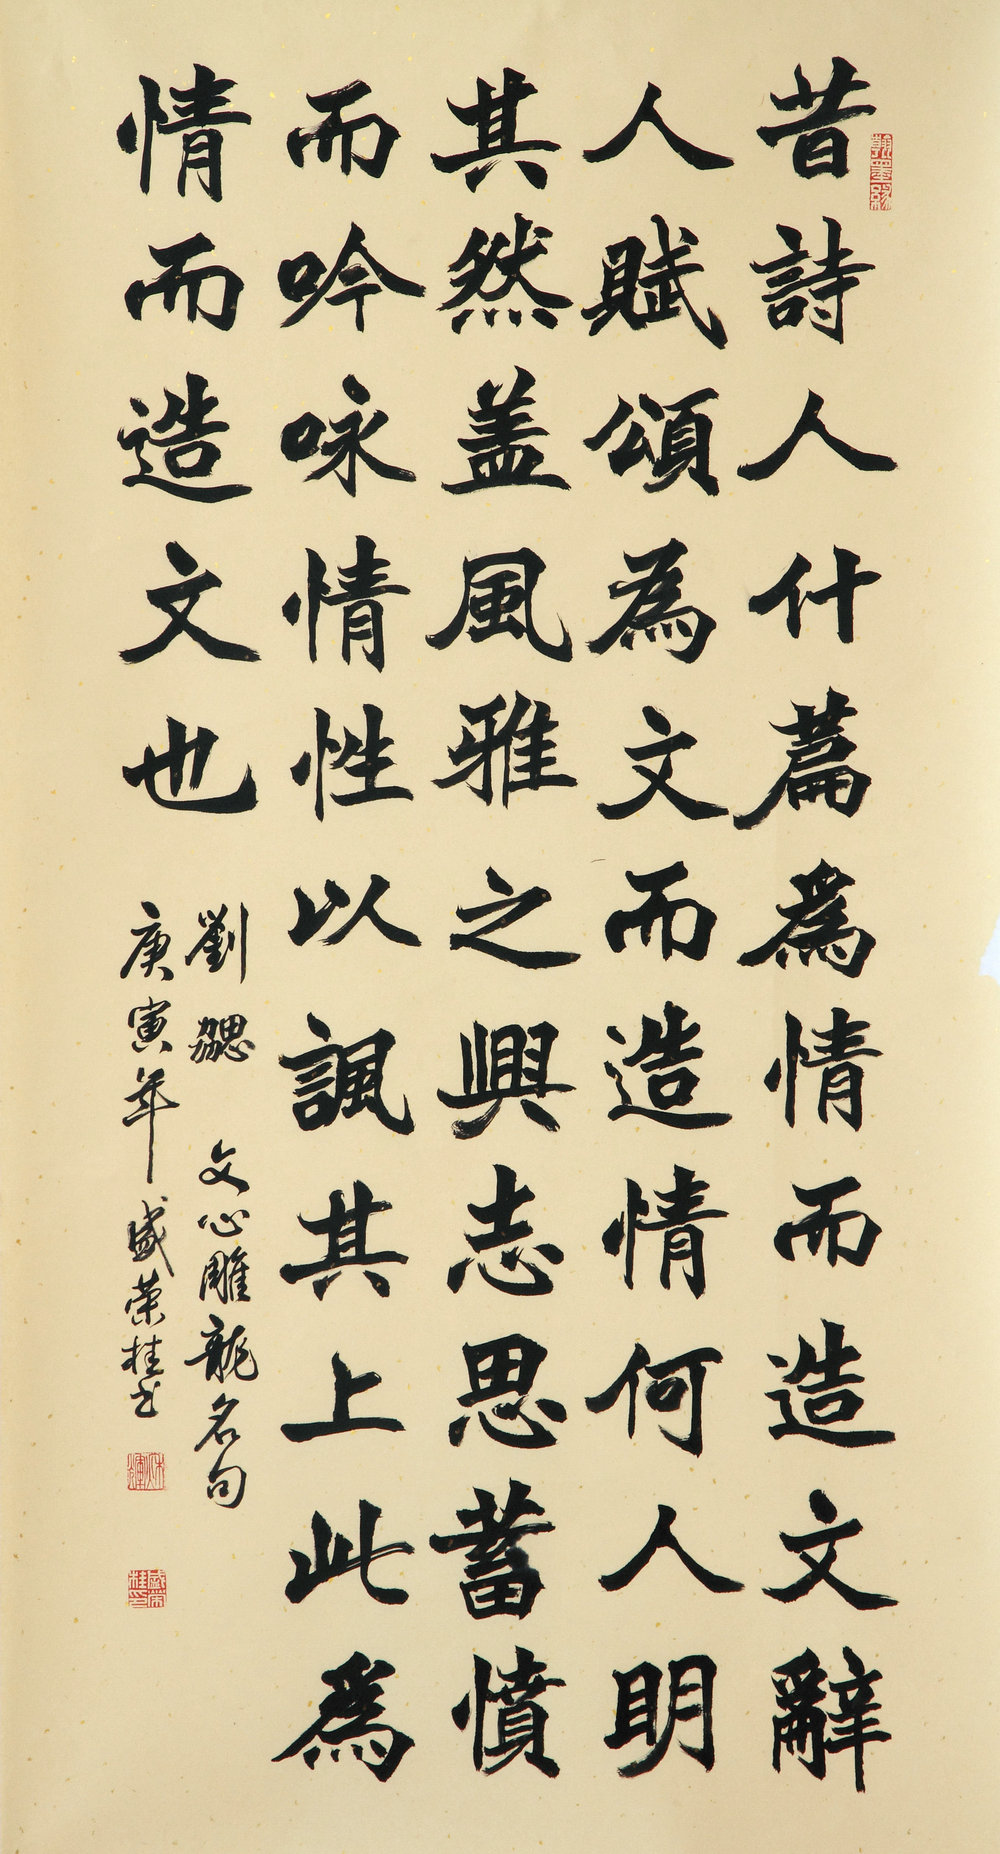 昔詩人什篇為情而造文辭
人賦頌為文而造情何人明
其然蓋風雅之興志思蓄憤
而吟咏情性以諷其上此為
情而造文也
劉勰 文心雕龍名句
庚寅年盛榮桂书
盛榮桂印